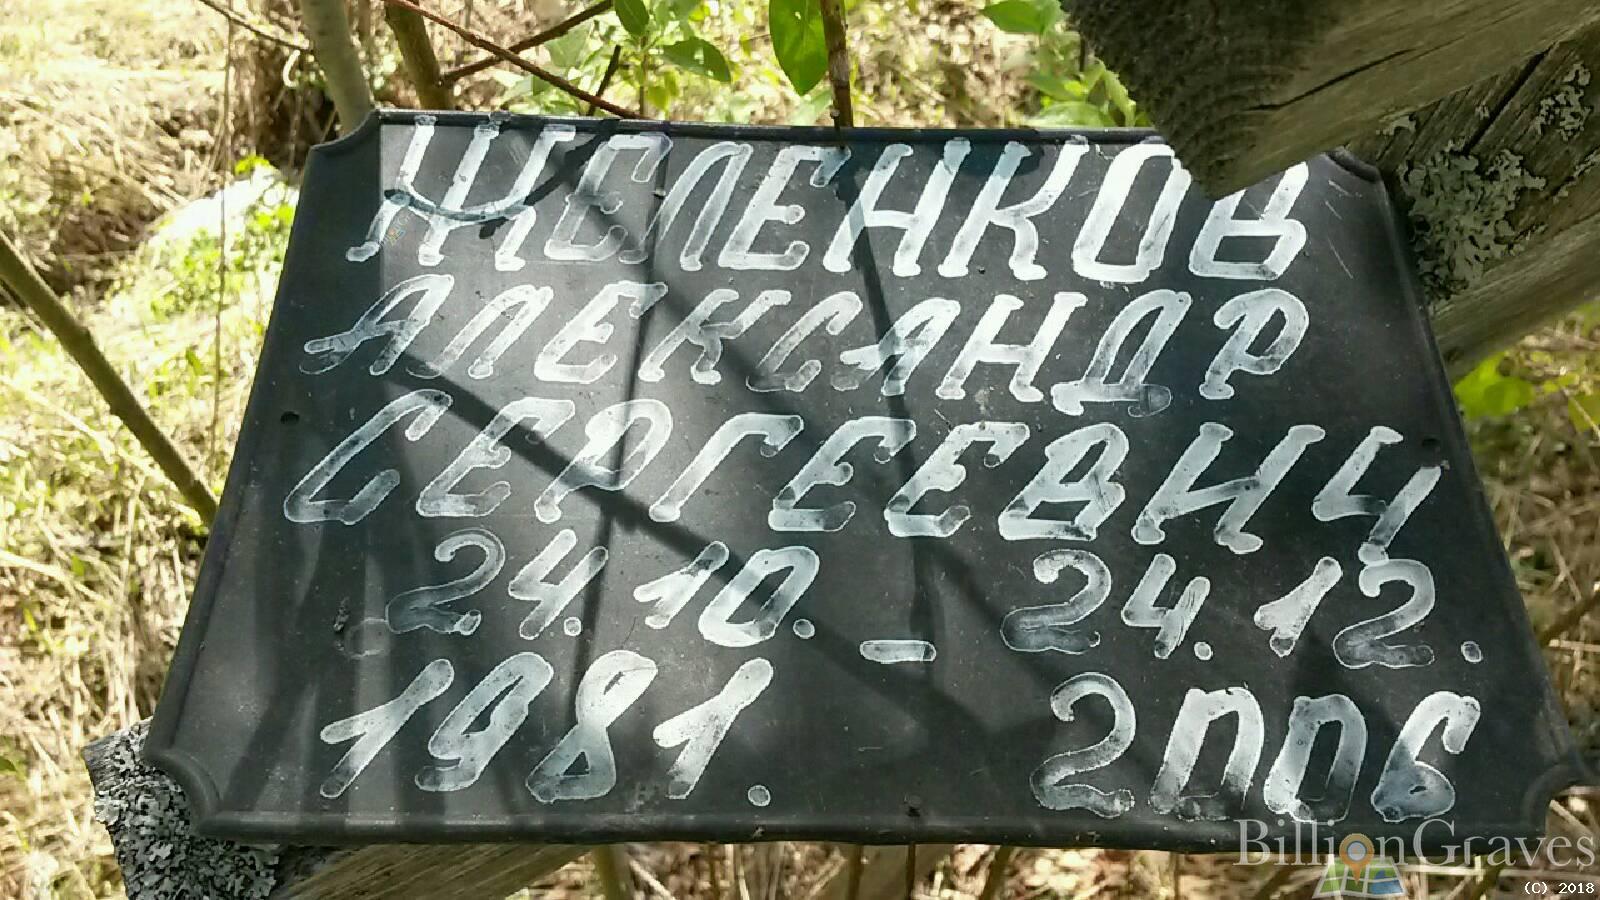 ЖЕЛЕНКОВ
АЛЕКСАНДР
СЕРГЕЕВИЧ
24.10. – 24.12.
1981. 2006
BillionGraves
(C) 2018